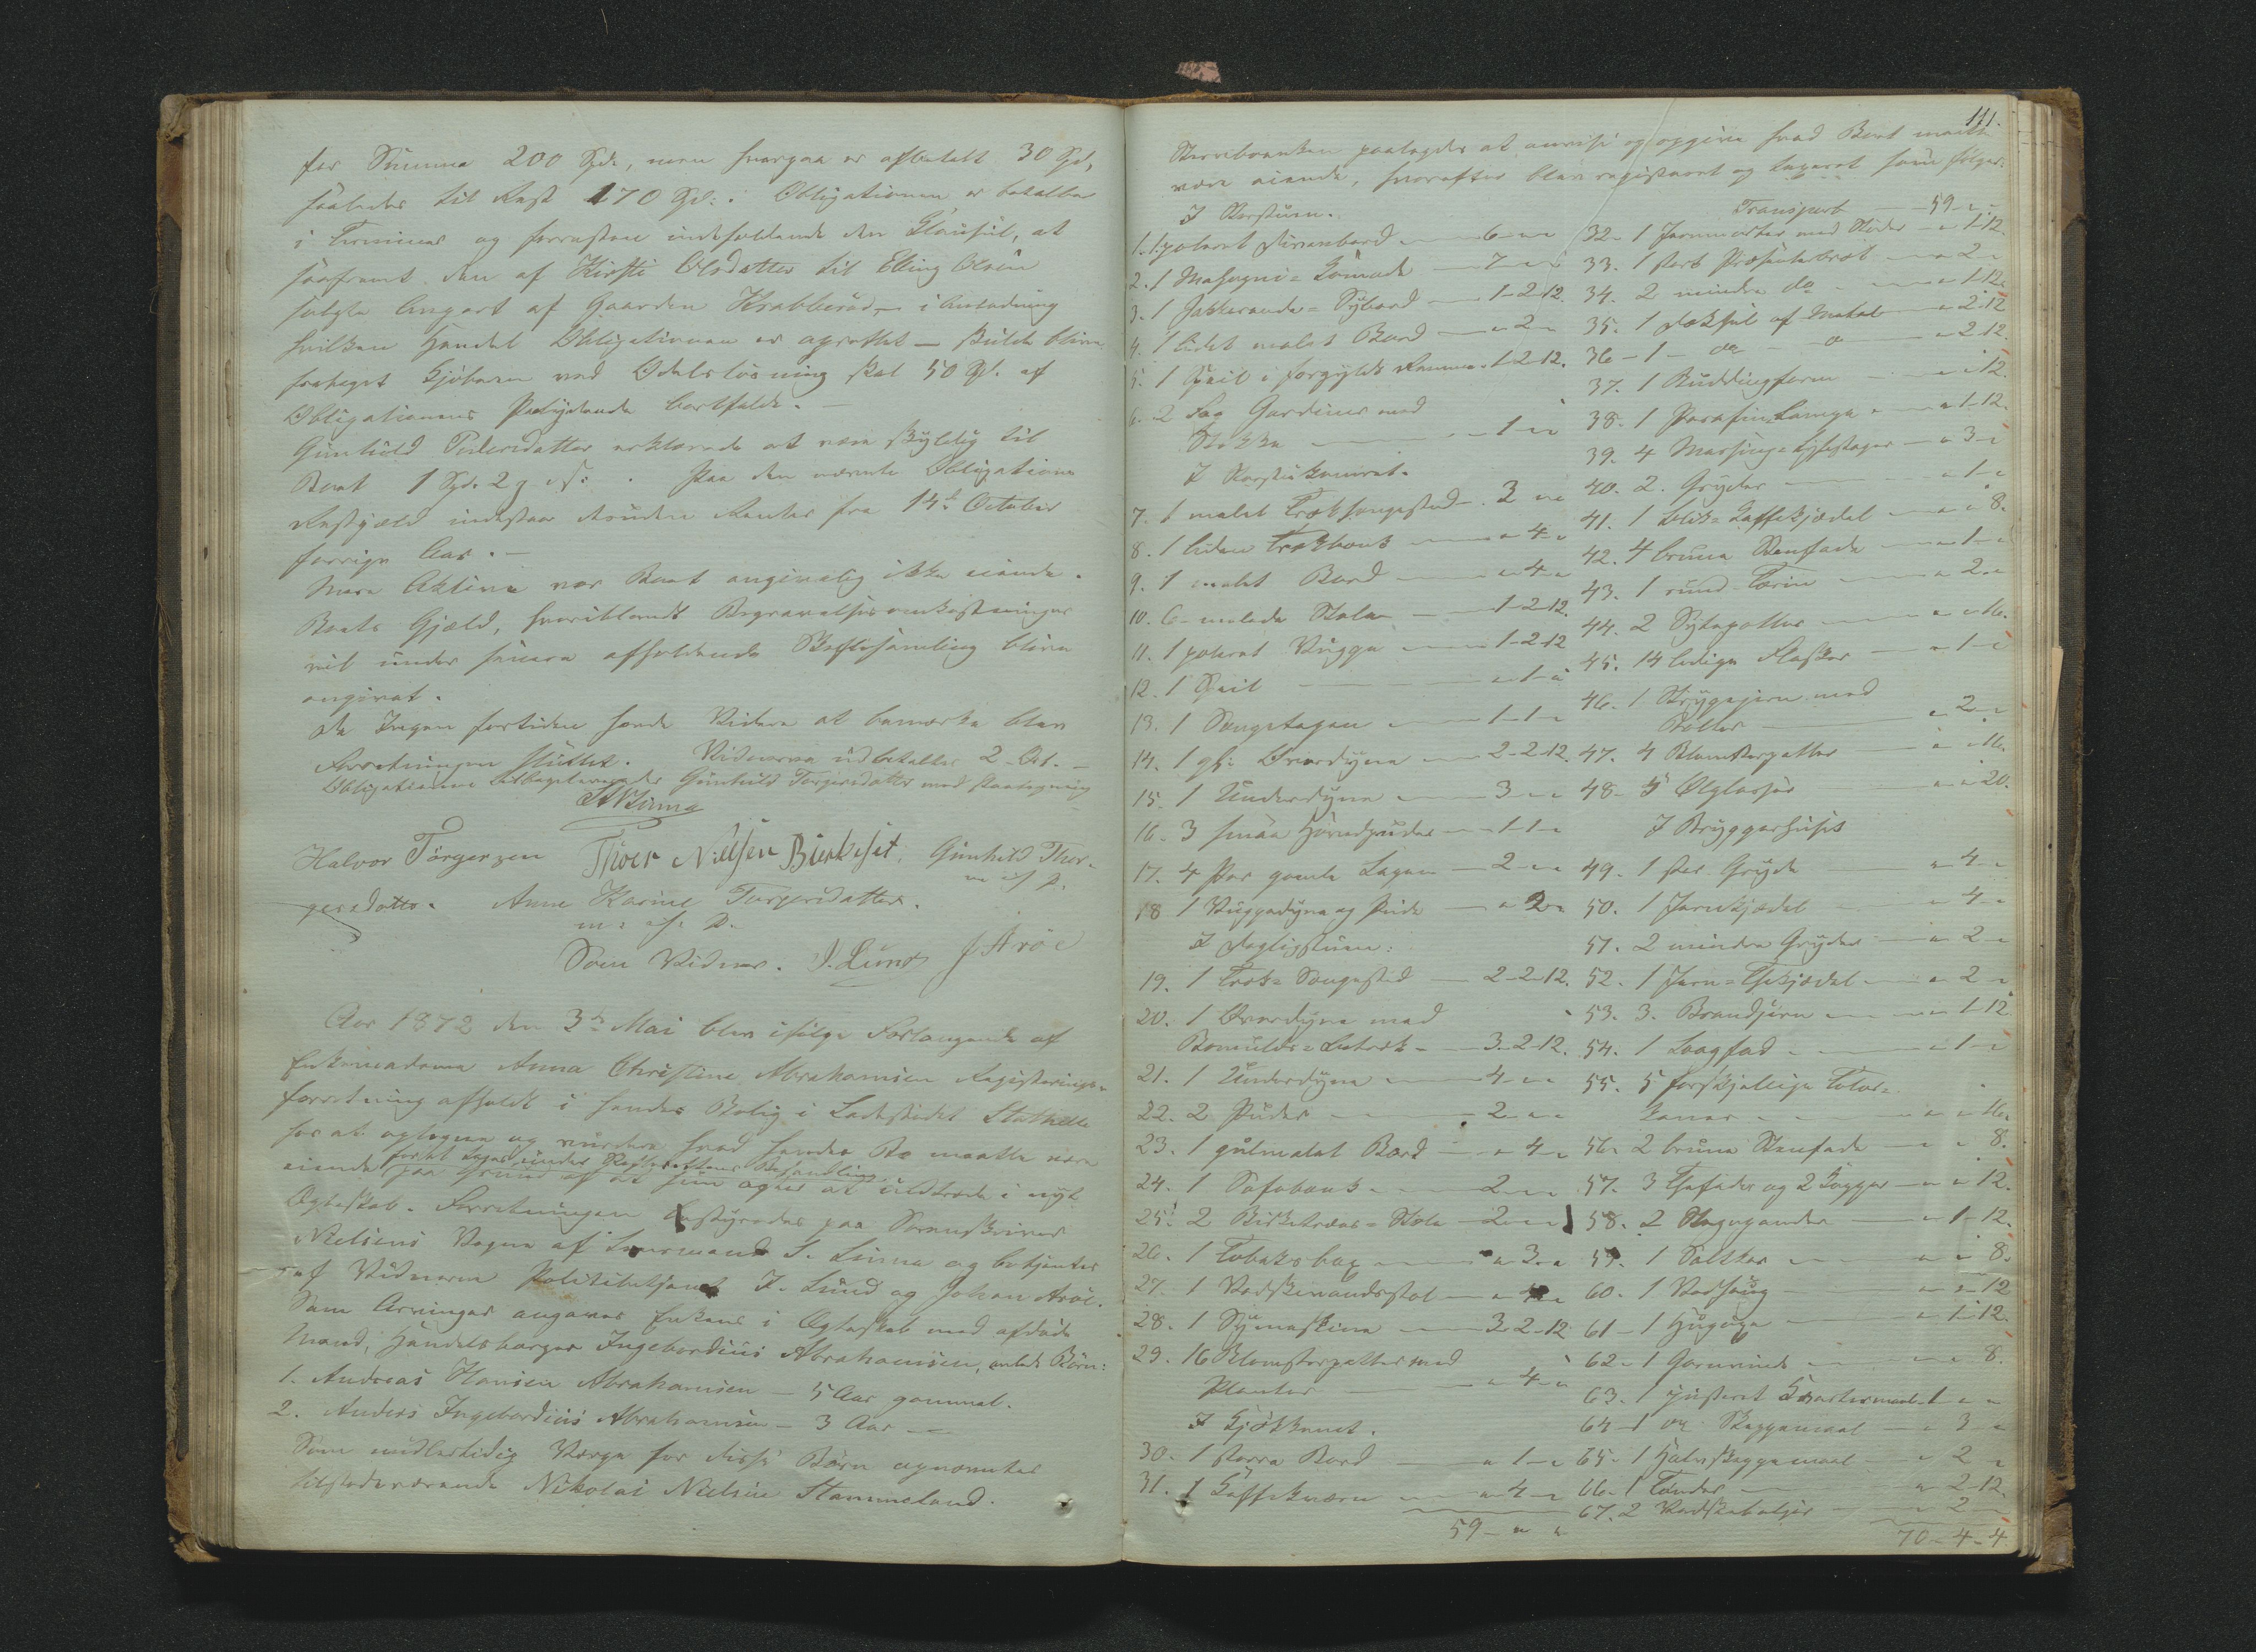 for Summa 200 Spd., men hvorpaa er afbetalt 30 Spd,
saaledes til Rest 170 Spd: . Obligationen er betalbar
i Terminer og forresten indeholdende den Clausul, at
saafremt den af Kirsti Olsdatter til Elling Olsen
solgte Anpart af Gaarden Krabberød, i Anledning
hvilken Handel Obligationen er oprettet – skulde blive
frataget Kjøberen ved Odelsløsning skal 50 Spd. af
Obligationens Paalydende bortfalde. –
Gunhild erklærede at være skyldig til
Boet 1 Spd. 2 . Paa den nævnte Obligations
Restgjæld indestaar desuden Renter fra 14de October
forrige Aar. –
Mere Aktiva var Boet angivelig ikke eiende.
Boets Gjæld, hvoriblandt Begravelsesomkostninger
vil under senere afholdende Skiftesamling blive
angivet.
Da Ingen fortiden havde Videre at bemærke blev
Forretningen sluttet. Vidnerne udbetaltes 2 . –
Obligationen tilbageleveredes Gunhild Torgersdatter med Paategning
Halvor Torgersen Thor Nielsen Gunhild Thor-
gersdatter. Anne Karine Torgersdatter.
m. f. P.
Som Vidner. I. Lund J. Arøe
Aar 1872 den 3die Mai blev ifølge Forlangende af
Enkemadame Anna Christine Abrahamsen Registrerings-
forretning afholdt i hendes Bolig i Ladestedet Stathelle
for at optegne og vurdere hvad hendes Bo maatte være
eiende for at tages under Skifterettens Behandling
paa Grund af at hun agter at indtræde i nyt
Ægteskab. Forretningen bestyredes paa Sorenskriver
Nielsens Vegne af Lensmand S. Linna og betjentes
af Vidnerne Politibetjent I. Lund og Johan Arøe.
Som Arvinger angaves Enkens i Ægteskab med afdøde
Mand, Handelsborger Ingebordius Abrahamsen, avlede Børn:
1. Andreas Hansen Abrahamsen – 5 Aar gammel.
2. Anders Ingebordius Abrahamsen – 3 Aar –
Som midlertidig Værge for disse Børn opnævntes
tilstedeværende Nikolai Nielsen Stammeland.
111.
Stervboenken paalagdes at anvise og opgive hvad Boet maatte
være eiende, hvorefter blev registreret og taxeret som følger:
I Storstuen.
1. 1 poleret Divanbord – 6 – " "
2. 1 Mahogni-Komode – 7 – " "
3. 1 Jakkerande-Sybord – 1-2-12.
4. 1 lidet malet Bord – " 2 "
5. 1 Speil i forgyldt Ramme. 1-2-12.
6. 2 Fag Gardiner med
Stokke – 1 – " "
I Storstukamret.
7. 1 malet Træksengested – 3 " "
8. 1 liden Trækbænk – " 4 "
9. 1 malet Bord – " 4 "
10. 6 malede Stole – 1-2-12.
11. 1 poleret Vugge – 1-2-12
12. 1 Speil – " 1 "
13. 1 Sengetæppe – 1-1-"
14. 1 gl: Overdyne – 2-2-12.
15. 1 Underdyne – 3 " "
16. 3 smaa Hovedpuder – 1-1-"
17. 4 Par gamle Lagen – 2 " "
18 1 Vuggedyne og Pude – " 2 "
I Dagligstuen:
19. 1 Træk-Sengested – 2-2-12.
20. 1 Overdyne med
Bomulds- – 3-2-12.
21. 1 Underdyne – 4 " "
22. 2 Puder – 2 " "
23. 1 gulmalet Bord – " 4 "
24. 1 Sofabænk – 2 " "
25. 2 Birketræes-Stole – 2 " "
26. 1 Tobaksbox – " 3 "
27. 1 Vadskevandsstol –
28. 1 Symaskine – 3-2-12
29. 16 Blomsterpotter med
Planter – " 4 "
I Kjøkkenet.
30. 1 større Bord – " 1 "
31. 1 Kaffekværn – " 4 "
59 – " "
Transport – 59 – " "
32. 1 Jernmorter med Støder – " 1-12.
33. 1 stort Præsenterbret – " 2 "
34. 2 mindre do – " 1-12.
35. 1 Dækfad af Metal – " 2-12
36 – 1 – do – " 2-12.
37. 1 Buddingform – " " 12.
38. 1 Parafinlampe – " 1-12.
39. 4 Messing-Lysestager – " 3 "
40. 2. Gryder – " 1 "
41. 1 Blik-Kaffekjædel – " " 8.
42. 4 brune Stenfade – " 1 "
43. 1 rund Terrin – " 2 "
44. 2 Syltepotter – " " 16.
45. 14 ledige Flasker – " 1 "
46. 1 Strygejern med
Bolter – " 2 "
47. 4 Blomsterpotter – " " 16.
48. 5 Ølglasse – " " 20.
I Bryggerhuset
49. 1 stor Gryde – " 4 "
50. 1 Jernkjædel – " 4 "
51. 2 mindre Gryder – " 2 "
52. 1 Jern-Thekjædel – " 2 "
53. 3. Brandjern – " 1-12
54. 1 Laagfad – " 1 "
55. 5 forskjellige
– " " 16.
56. 2 brune Stenfade – " " 8.
57. 3 Thefade og 2 Kopper – " " 12.
58. 2 Stegepander – " 1-12.
59. 1 Saltkar – " " 8.
60. 1 Vedsaug – " " 12
61 – 1 Hugøxe – " 1-12.
62 – 1 Garnvinde – " " 8.
63. 1 justeret 1 " "
64 – 1 do Skjeppemaal – " 3 "
65. 1 Halvskjeppemaal – " 2 "
66. 1 Tønder – " 2-12.
67. 2 Vadskebaljer – " 2 "
70 – 4 – 4